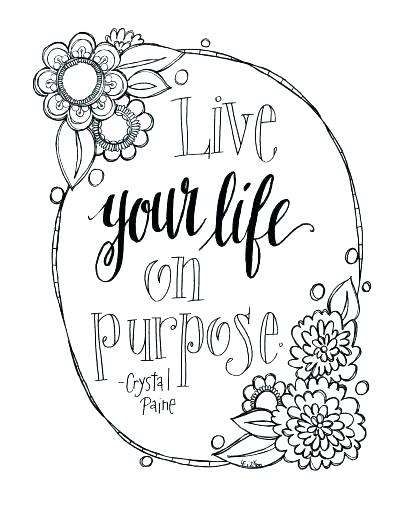 Live
your life
on
purpose.
-Crystal
Paine